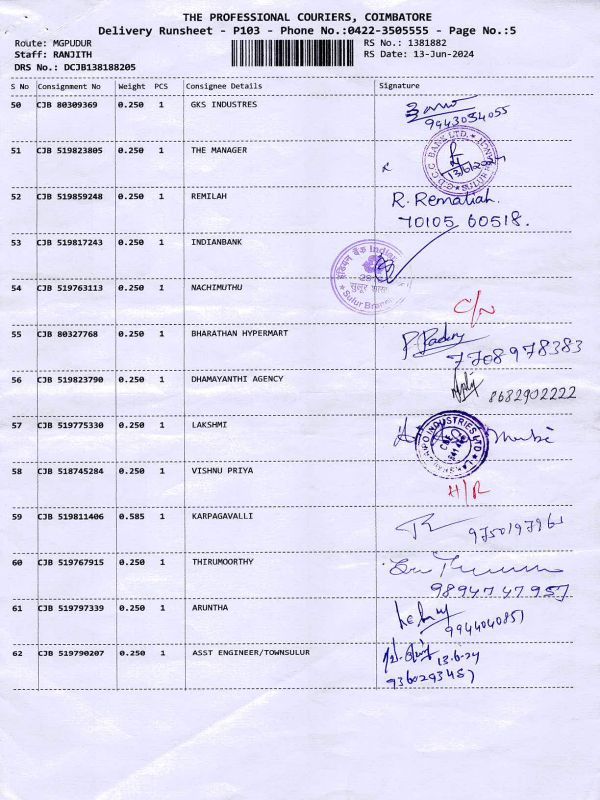 THE PROFESSIONAL COURIERS, COIMBATORE
Delivery Runsheet - P103 - Phone No.:0422-3505555 - Page No.:5
Route: MGPUDUR RS No.: 1381882
Staff: RANJITH RS Date: 13-Jun-2024
DRS No.: DCJB138188205
S No Consignment No Weight PCS Consignee Details Signature
50 CJB 80309369 0.250 1 GKS INDUSTRES
9943034055
51 CJB 519823805 0.250 1 THE MANAGER
52 CJB 519859248 0.250 1 REMILAH R. Remaliah.
70105 60518.
53 CJB 519817243 0.250 1 INDIANBANK
54 CJB 519763113 0.250 1 NACHIMUTHU
C/N
55 CJB 80327768 0.250 1 BHARATHAN HYPERMART
7708978383
56 CJB 519823790 0.250 1 DHAMAYANTHI AGENCY
8682902222
57 CJB 519775330 0.250 1 LAKSHMI
58 CJB 518745284 0.250 1 VISHNU PRIYA
H/R
59 CJB 519811406 0.585 1 KARPAGAVALLI
60 CJB 519767915 0.250 1 THIRUMOORTHY
98947 47957
61 CJB 519797339 0.250 1 ARUNTHA
9944040851
62 CJB 519790207 0.250 1 ASST ENGINEER/TOWNSULUR 13-6-24
9360293457